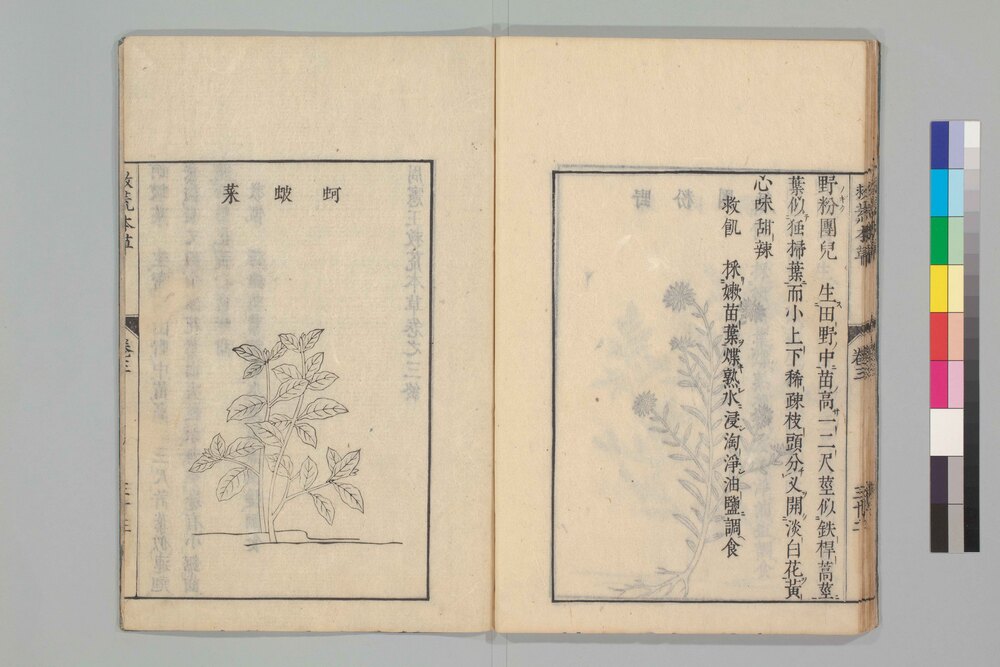 野粉團兒 生田野中苗高一二尺莖似鉄桿蒿莖
葉似獨掃葉而小上下稀疎枝頭分叉開淡白花黃
心味甜辣
救飢 採嫩苗葉煠熟水浸淘淨油鹽調食
蚵蚾菜
救荒本草
卷三